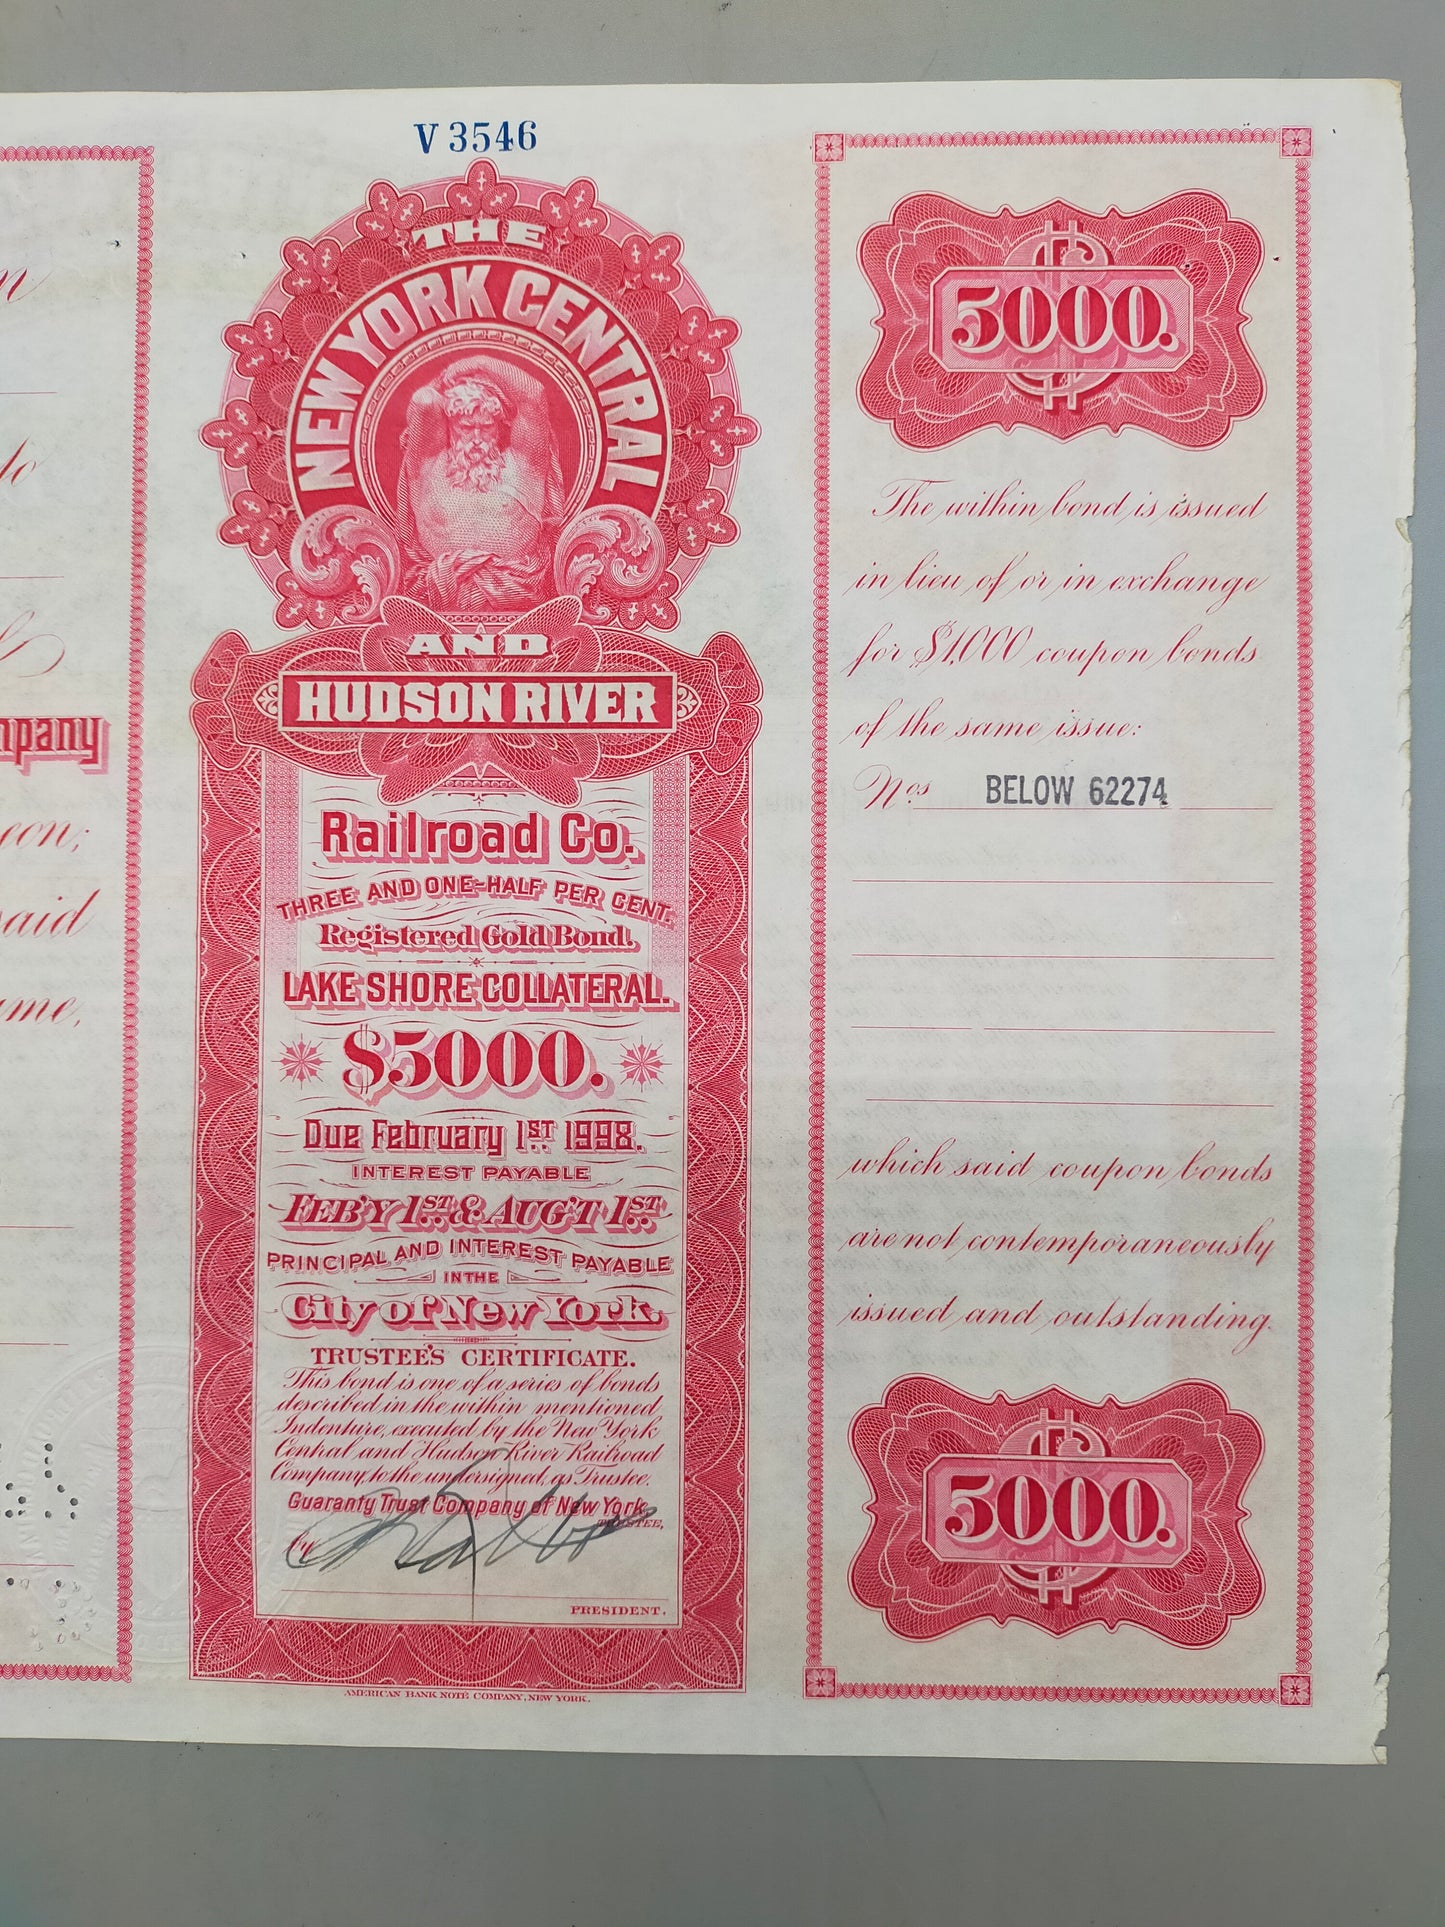 V 3546
THE
NEW YORK CENTRAL
AND
HUDSON RIVER
Railroad Co.
THREE AND ONE-HALF PER CENT.
Registered Gold Bond.
LAKE SHORE COLLATERAL.
$5000.
Due February 1ST 1998.
INTEREST PAYABLE
FEB'Y 1ST & AUG'T 1ST
PRINCIPAL AND INTEREST PAYABLE
IN THE
City of New York.
TRUSTEE'S CERTIFICATE.
This bond is one of a series of bonds
described in the within mentioned
Indenture, executed by the New York
Central and Hudson River Railroad
Company to the undersigned, as Trustee.
Guaranty Trust Company of New York,
TRUSTEE,
by
PRESIDENT.
AMERICAN BANK NOTE COMPANY, NEW YORK.
5000.
The within bond is issued
in lieu of or in exchange
for $1,000 coupon bonds
of the same issue:
Nos BELOW 62274
which said coupon bonds
are not contemporaneously
issued and outstanding.
5000.